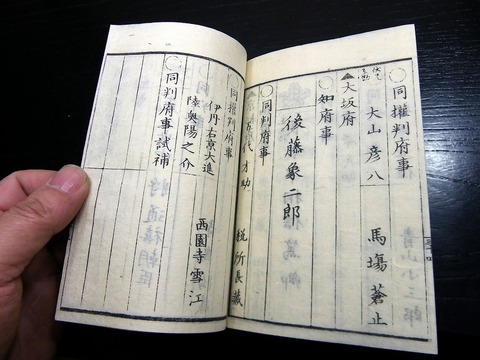 〇同權判府事
大山彦八 馬塲蒼止
▲大坂府
〇知府事
後藤象二郎
〇同判府事
才助 税所長藏
〇同權判府事
伊丹右京大進
陸奥陽之介 西園寺雪江
〇同判府事試補